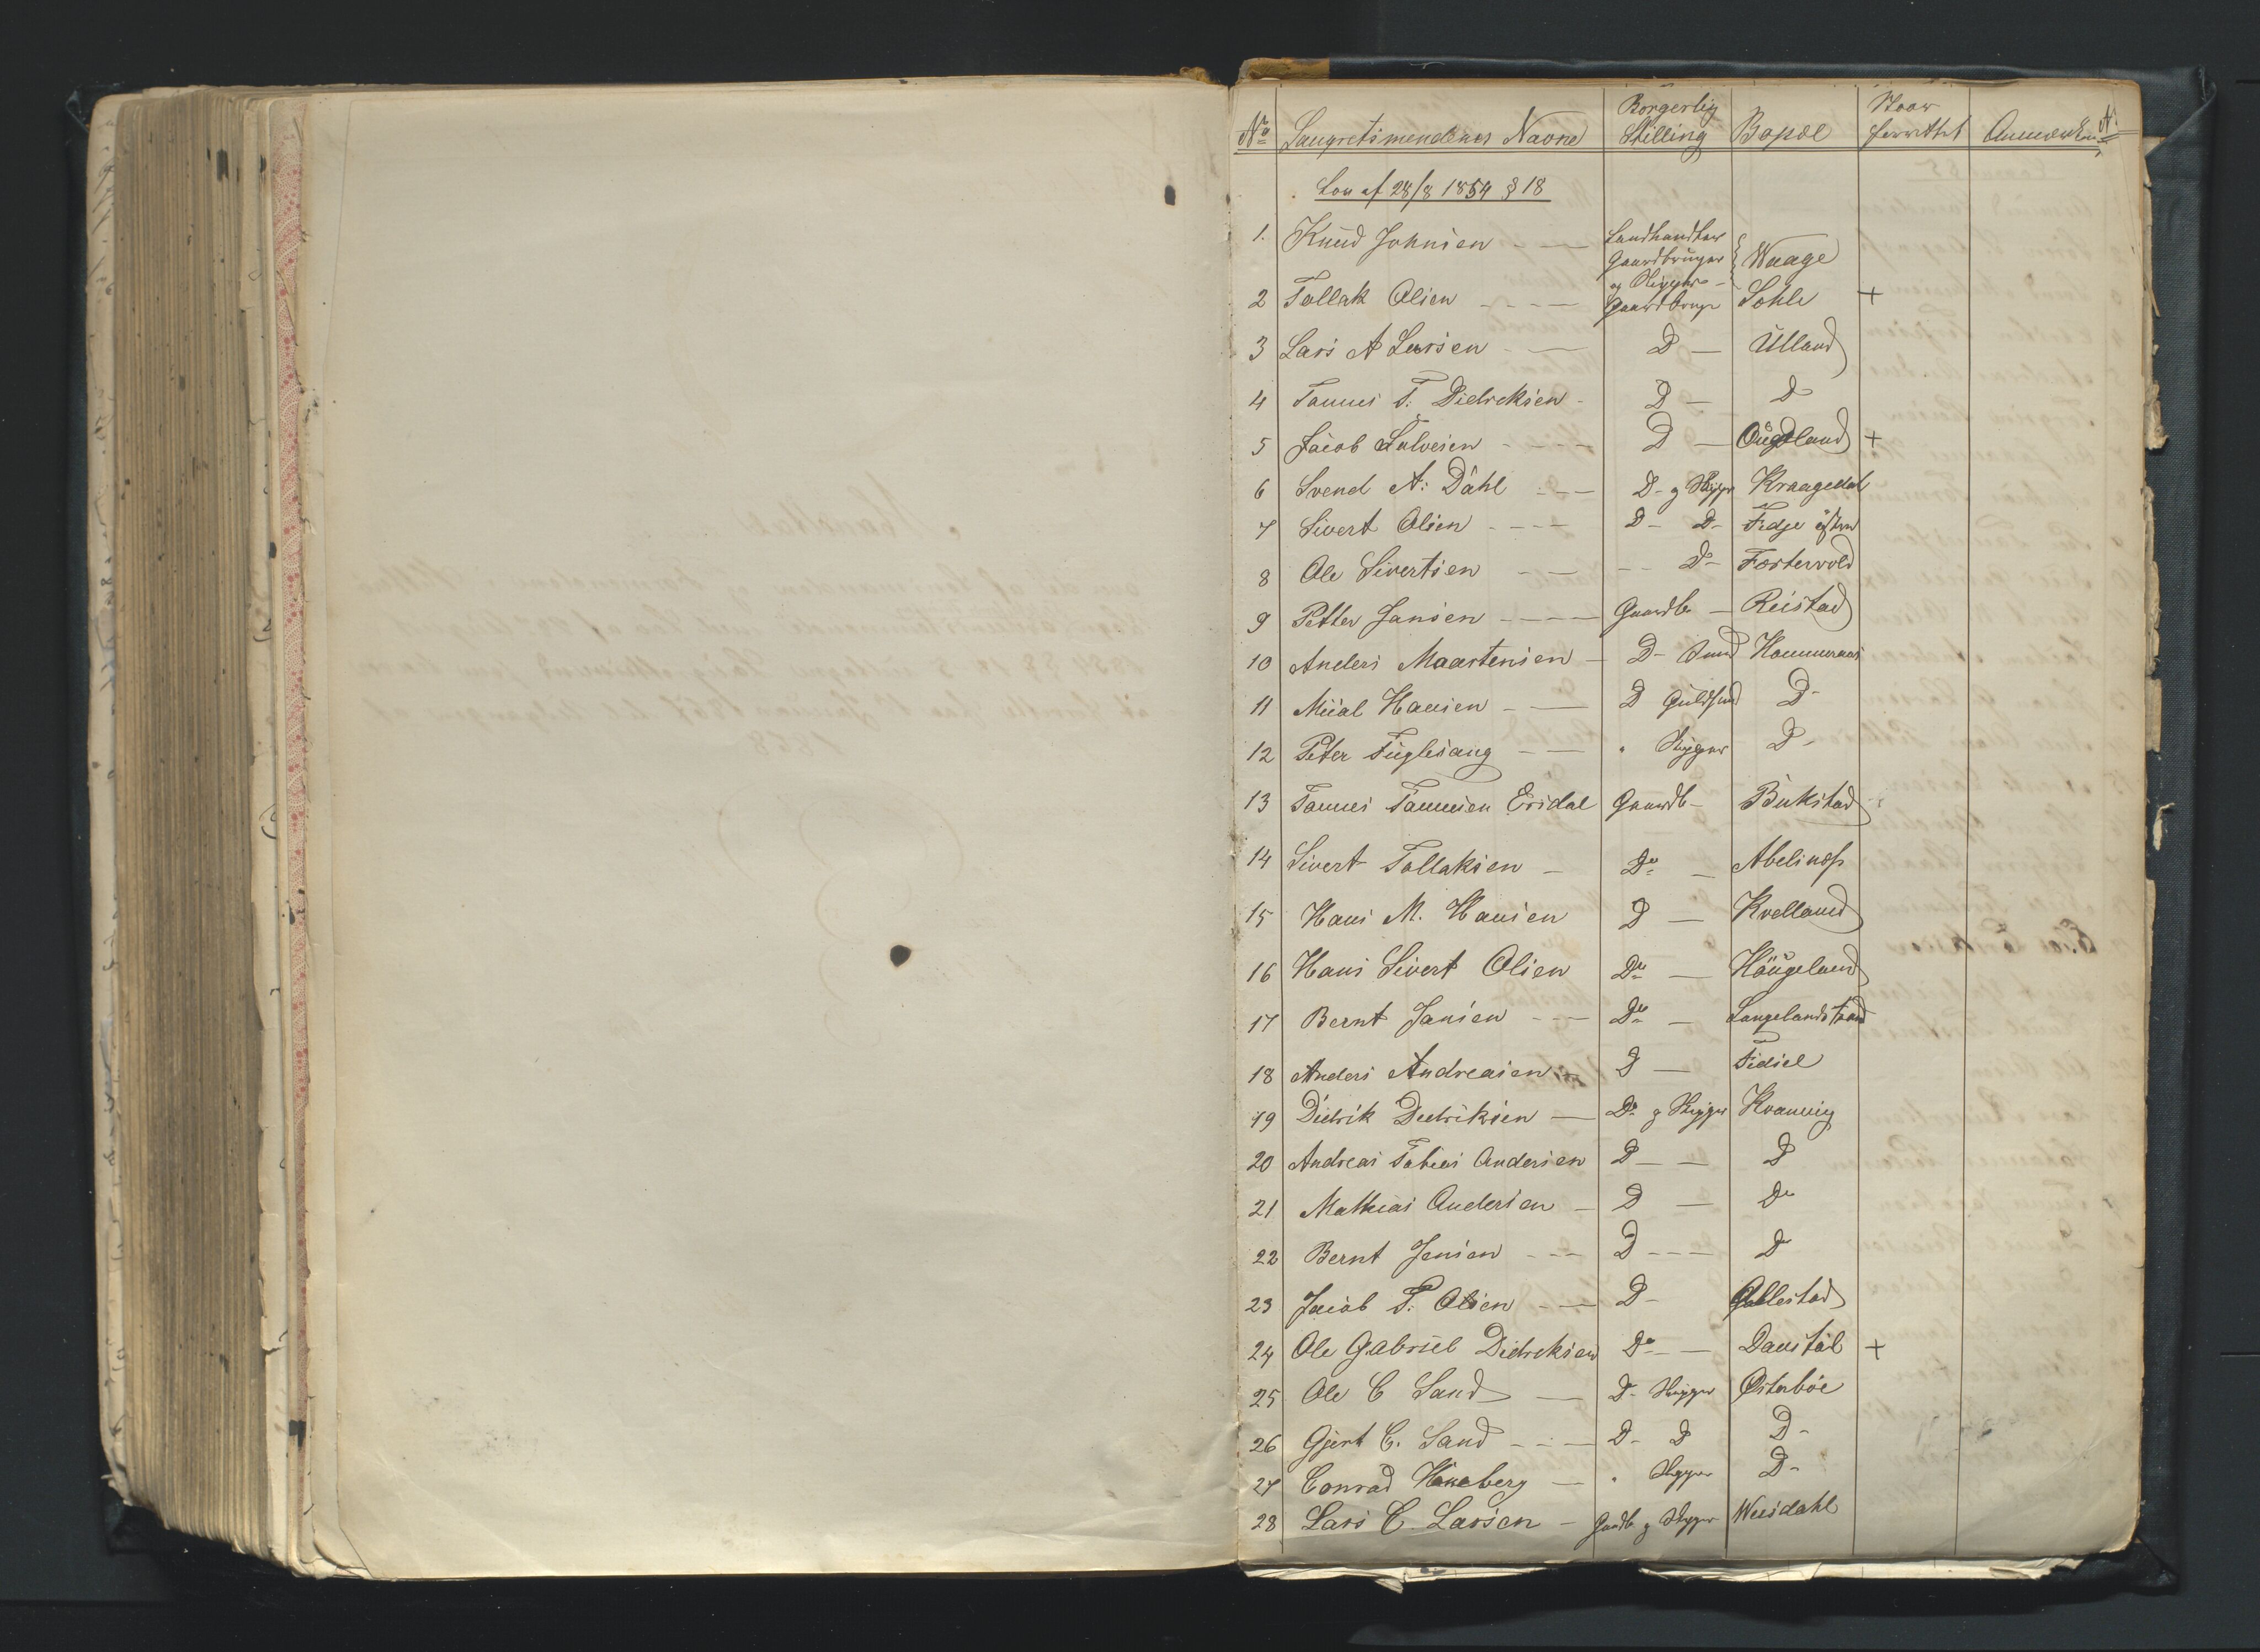 No Laugretsmendenes Navne Borgerlig Stilling Bopæl Naar Anmærkn
Lov af 28/8 1854 § 18
1. Knud Johnsen - — Landhandler Gaardbruger og Skipper - Waage
2 Tollak Olsen - - - — Gaardbruger Sohle +
3 Lars A Larsen - — D — Ulland
4 Tønnes T: Didreksen - D — D-
5 Jacob Salvesen - - - - D — Øugland +
6 Svend A: Dahl - - — D- og Skipper Kraagedal
7 Sivert Olsen - - - - D- D- Fidje østre
8 Ole Sivertsen - — - - D- Fostervold
9 Petter Jansen - - - — Gaardb — Reistad
10 Anders Maartensen — D- Hammeraas
11 Miial Hansen - — D Guldsmd D-
12 Peter Fuglesang - — " Skipper D-
13 Tønnes Tønnesen Eridal Gaardb- Bukstad
14 Sivert Tollaksen — Do — Abelsnæs
15 Hans M. Hansen D — Kvelland
16 Hans Sivert Olsen Do — Høugeland
17 Bernt Jansen - - — Do — Langelandstrand
18 Anders Andreasen - D — Fidsel
19 Didrik Didriksen — Do og Skipper Kvanvig
20 Andreas Tobias Andersen D — — D
21 Mathias Andersen — D — Do
22 Bernt Jensen - - - D - - - Do
23 Jacob T. Olsen - — D- Gallestad
24 Ole Gabriel Didreksen Do - — Danstøl +
25 Ole C Sand — D- Skipper Østerbøe
26 Gjert C. Sand - - — D- D D-
27 Conrad Haneberg — " Skipper D-
28 Lars C. Larsen - Gaardb og Skipper Weisdahl